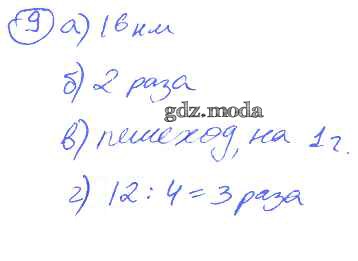 9 а) 16 км
б) 2 раза
gdz.moda
в) пешеход, на 1 г.
г) 12 : 4 = 3 раза